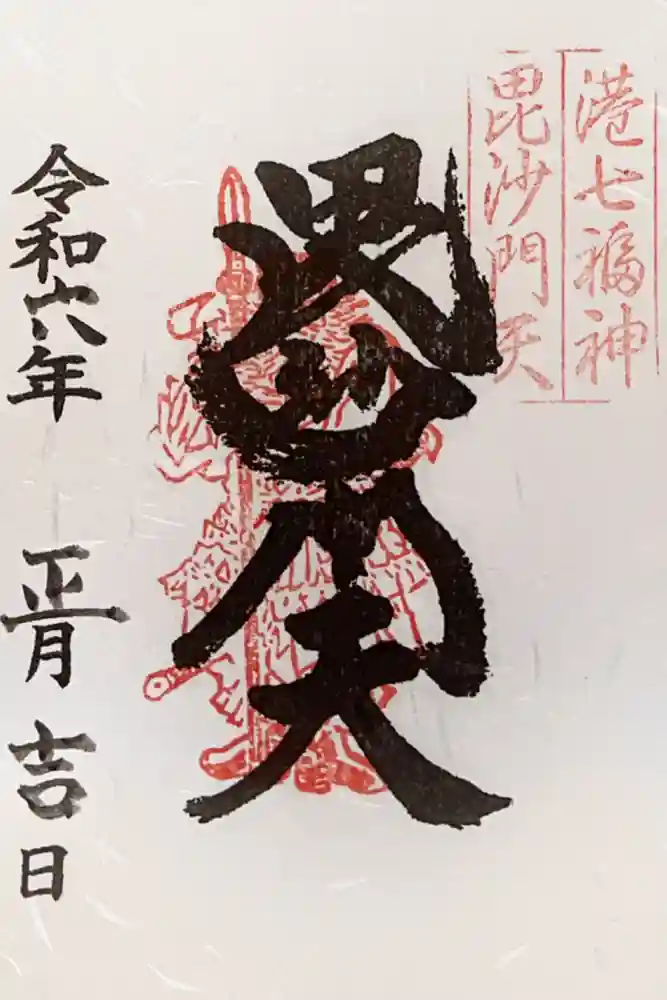 港七福神
毘沙門天
毘沙門天
令和六年 正月 吉日